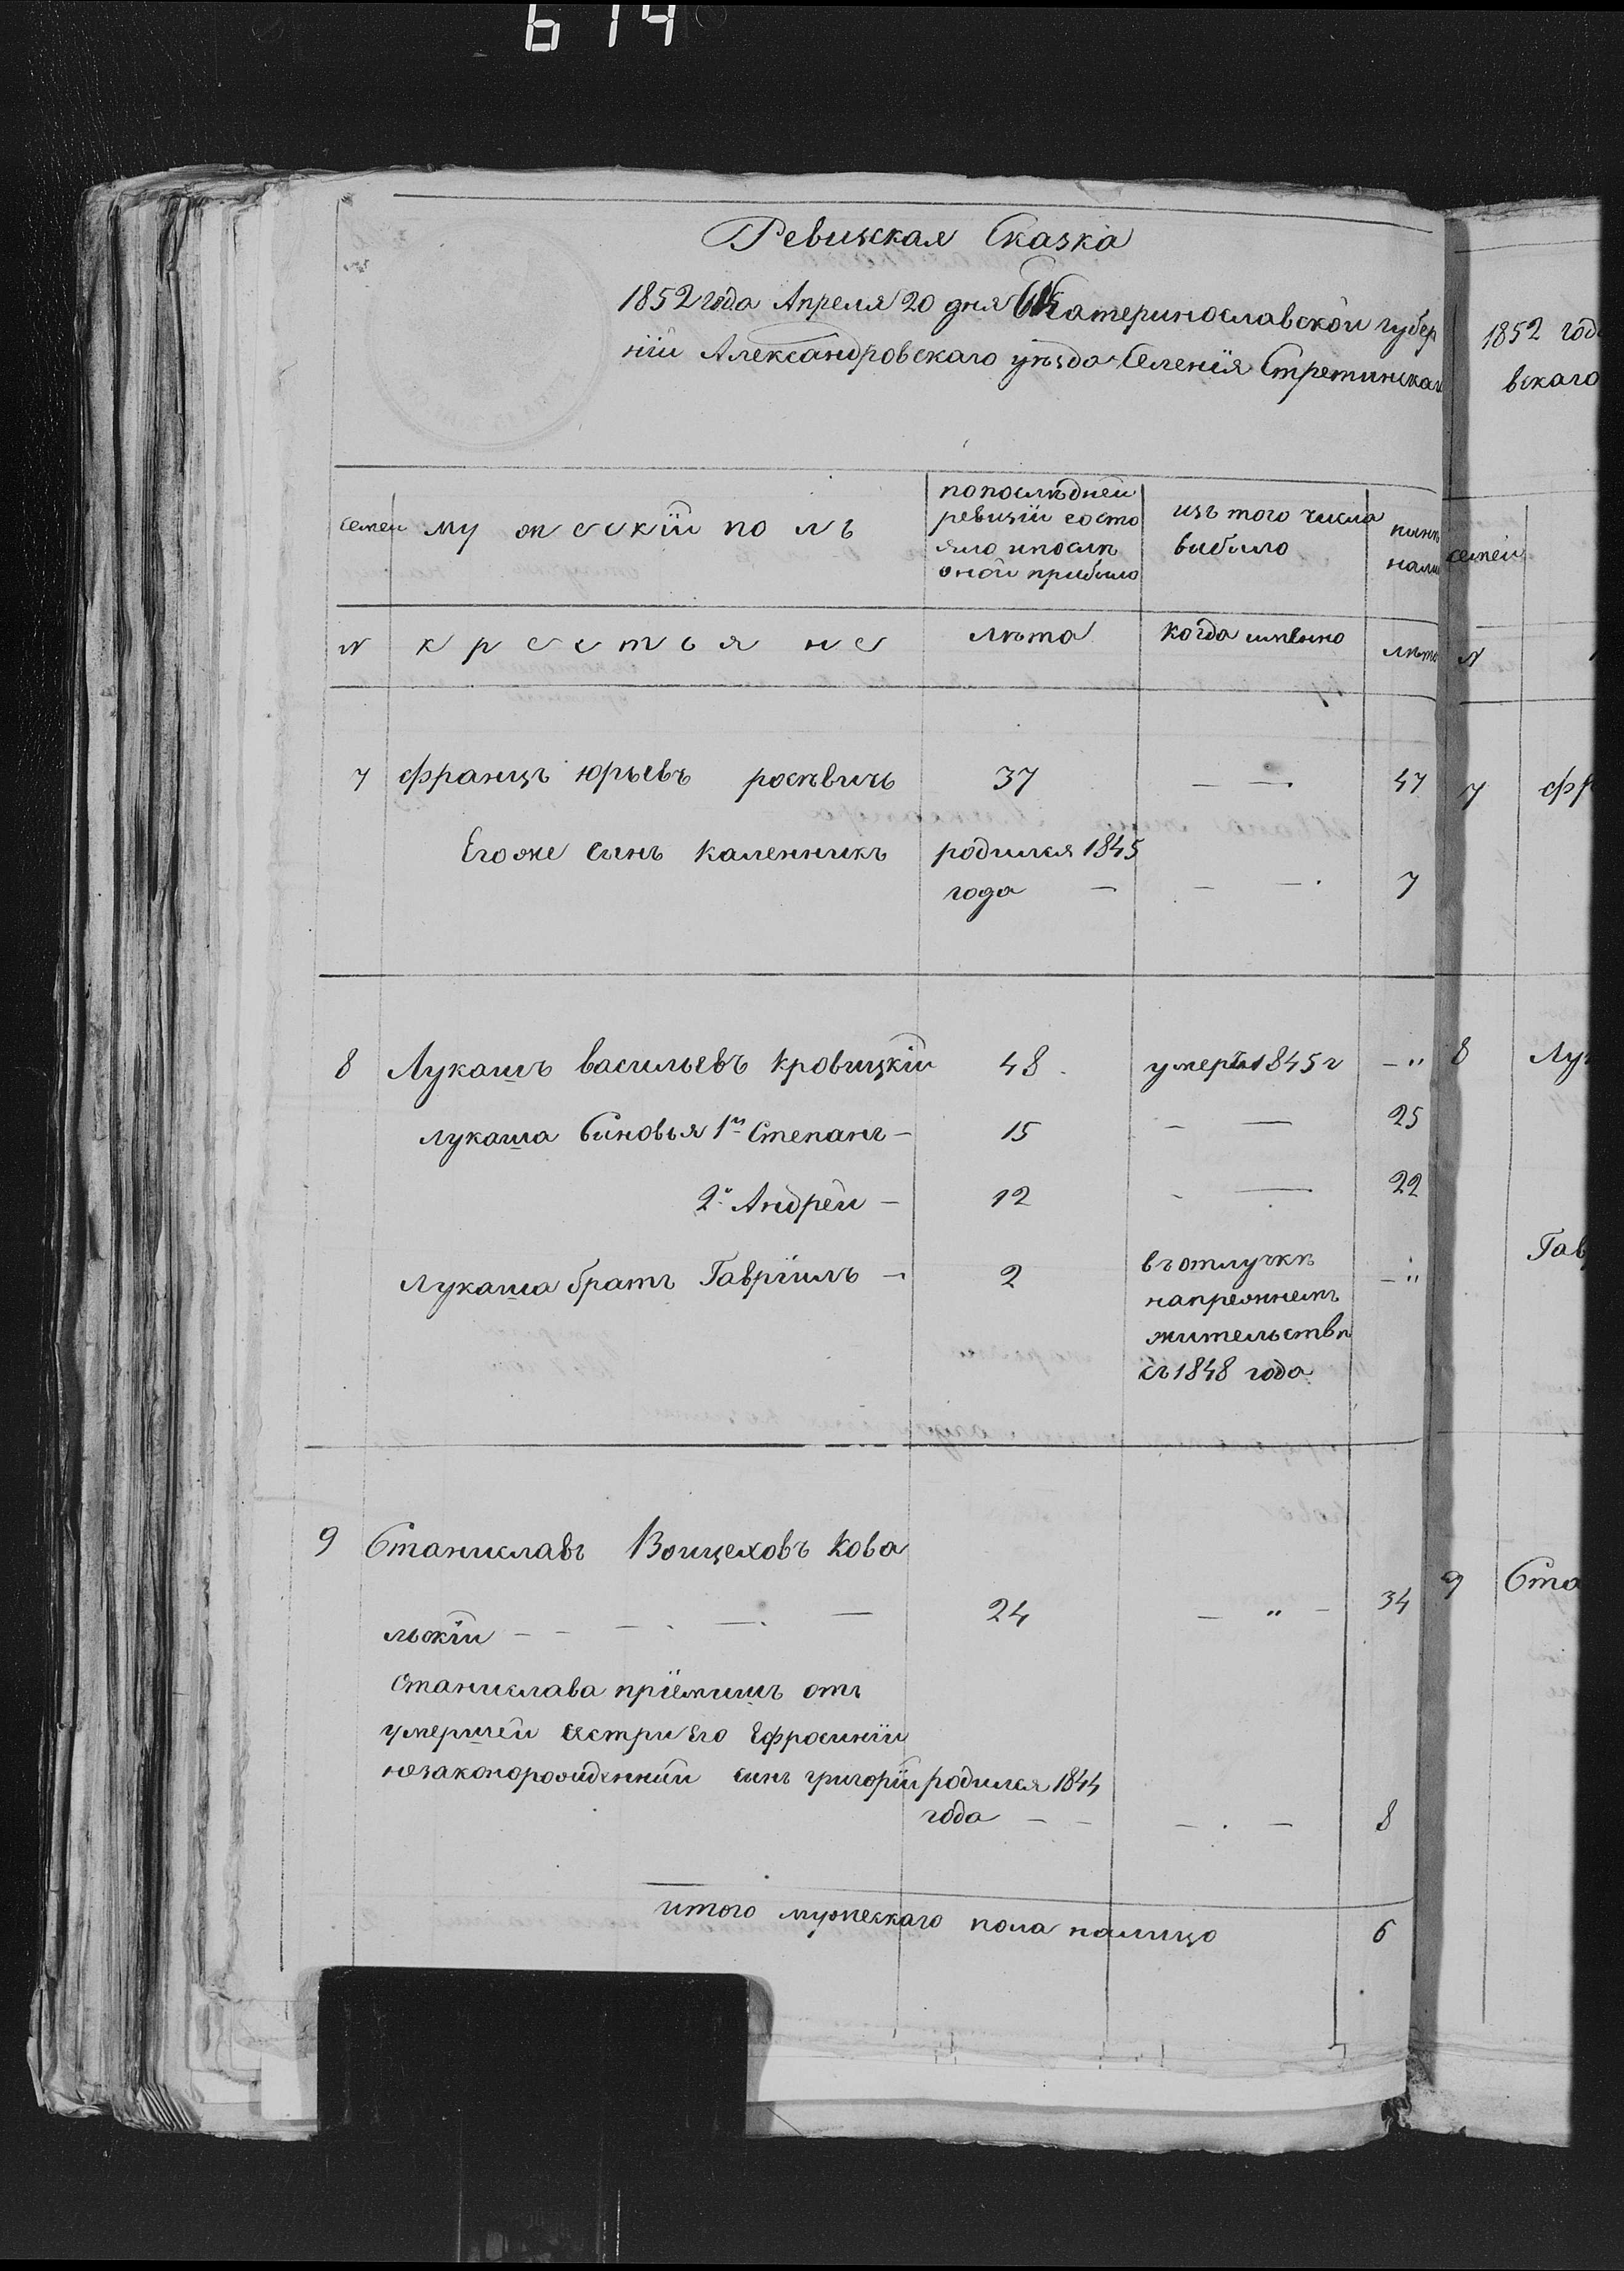 614
Ревизкая Сказка
1852 года Апреля 20 дня Екатеринославской губер
нїи Александровскаго уѣзда Селенїя Стретинскаго
семеи
мужескїй полъ
попослѣдней
ревизїи состо
яло ипослѣ
оной прибыло
изъ того числа
выбыло
нынѣ
нали
N
крестьяне
лѣта
когда именно
лѣта
7 францъ юрьевъ росѣвичь 37 — — 47
Егоже сынъ каленникъ родился 1845
года — — — 7
8 Лукашъ васильевъ Кровицкїй 48 умеръ 1845 г — "
лукаша Сыновья 1й Степанъ — 15 — — 25
2й Андрей — 12 — — 22
Лукаша братъ Гаврїилъ — 2 въ отлучкѣ — "
напрежнемъ
жительствѣ
съ 1848 года
9 Станиславъ Воицеховъ Кова
льскїй — — — — — 24 — " — 34
Станислава прїемишъ отъ
умершей сестры Его Ефросинїи
незаконорожденный сынъ григорїй родился 1844
года — — — . — 8
итого мужескаго пола налицо 6
1852 года
вскаго
семеи
N
7 фр
8 Лук
Гав
9 Ста